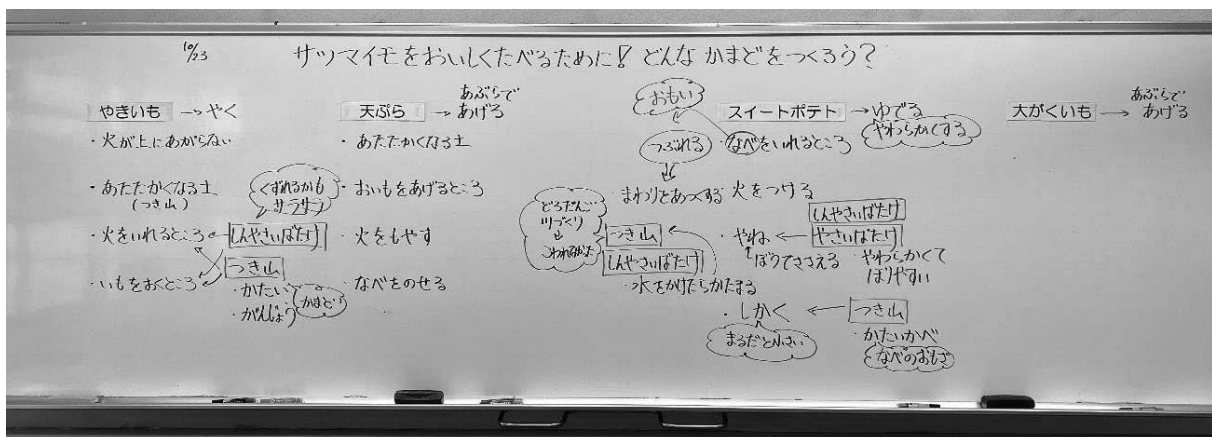 10/23
サツマイモをおいしくたべるために! どんな かまどをつくろう?
やきいも → やく
・火が上にあがらない
・あたたかくなる土
(つき山)
・火をいれるところ
・いもをおくところ
くずれるかも
サラサラ
しんやさいばたけ
つき山
・かたい
・がんじょう
かまど
天ぷら → あぶらで
あげる
・あたたかくなる土
・おいもをあげるところ
・火をもやす
・なべをのせる
おもい
つぶれる
スイートポテト → ゆでる
やわらかくする
・なべをいれるところ
まわりをあつくする 火をつける
どろだんご
川づくり
こわれなかった
つき山
しんやさいばたけ
・水をかけたらかたまる
しんやさいばたけ
・やね ← やさいばたけ
ぼうでささえる
・やわらかくて
ほりやすい
・しかく ← つき山
まるだと小さい
・かたいかべ
なべのおもさ
大がくいも → あぶらで
あげる